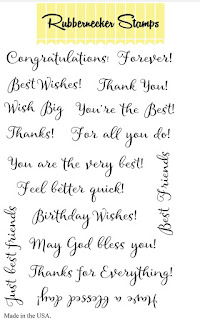 Rubbernecker Stamps
Congratulations! Forever!
Best Wishes! Thank You!
Wish Big You're the Best!
Thanks! For all you do!
You are the very best!
Feel better quick!
Birthday Wishes!
May God bless you!
Thanks for Everything!
Have a blessed day!
Just best friends
Best Friends
Made in the USA.